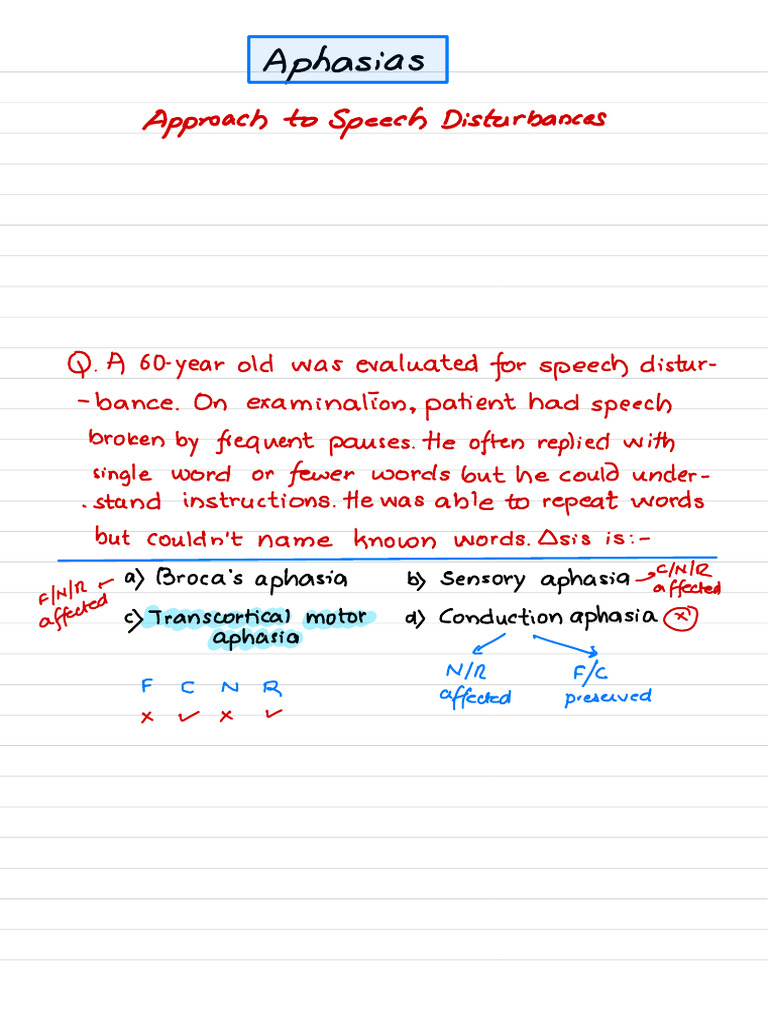 Aphasias
Approach to Speech Disturbances
Q. A 60-year old was evaluated for speech distur-
-bance. On examination, patient had speech
broken by frequent pauses. He often replied with
single word or fewer words but he could under-
.stand instructions. He was able to repeat words
but couldn't name known words. Δsis is:-
F/N/R affected ← a) Broca's aphasia b) Sensory aphasia → C/N/R affected
c) Transcortical motor aphasia d) Conduction aphasia (x)
N/R affected F/C preserved
F C N R
x ✓ x ✓